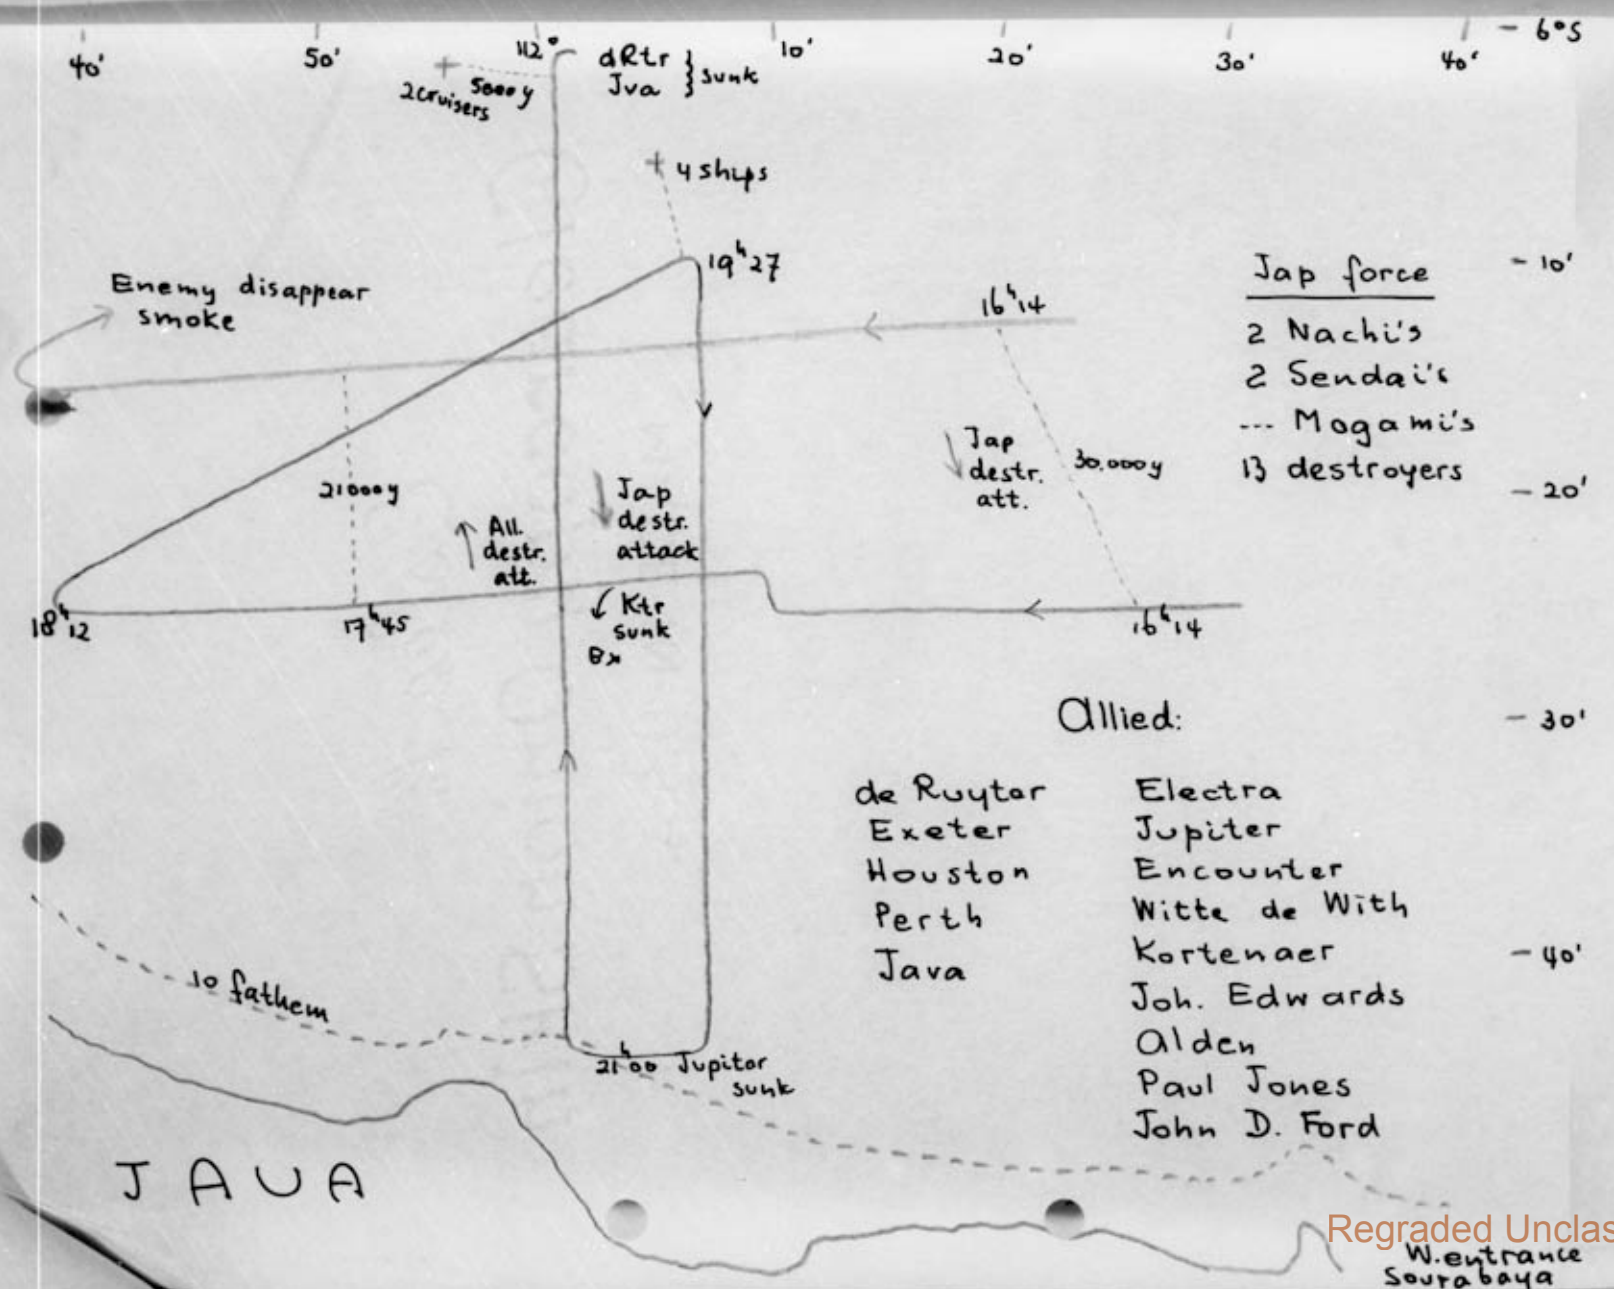 - 6°S
40'
50'
112°
10'
20'
30'
40'
dRtr
Jva } sunk
5000y
2 cruisers
+ 4 ships
19ʰ27
Enemy disappear
smoke
16ʰ14
Jap force
2 Nachi's
2 Sendai's
--- Mogami's
13 destroyers
- 10'
- 20'
Jap
destr.
att.
30.000y
21000y
All.
destr.
att.
Jap
destr.
attack
Ktr
sunk
18ʰ12
17ʰ45
16ʰ14
- 30'
Allied:
de Ruyter
Exeter
Houston
Perth
Java
Electra
Jupiter
Encounter
Witte de With
Kortenaer
Joh. Edwards
Alden
Paul Jones
John D. Ford
- 40'
10 fathem
21ʰ00 Jupiter
sunk
JAVA
Regraded Unclas
W. entrance
Sourabaya